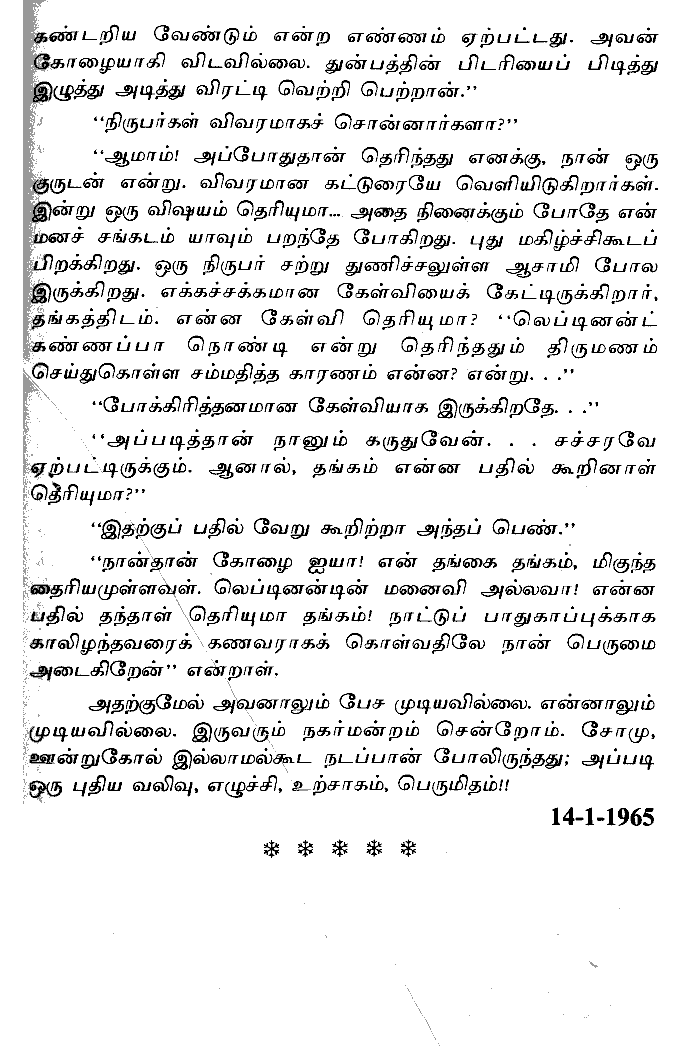 கண்டறிய வேண்டும் என்ற எண்ணம் ஏற்பட்டது. அவன்
கோழையாகி விடவில்லை. துன்பத்தின் பிடரியைப் பிடித்து
இழுத்து அடித்து விரட்டி வெற்றி பெற்றான்.''
''நிருபர்கள் விவரமாகச் சொன்னார்களா?''
''ஆமாம்! அப்போதுதான் தெரிந்தது எனக்கு, நான் ஒரு
குருடன் என்று. விவரமான கட்டுரையே வெளியிடுகிறார்கள்.
இன்று ஒரு விஷயம் தெரியுமா... அதை நினைக்கும் போதே என்
மனச் சங்கடம் யாவும் பறந்தே போகிறது. புது மகிழ்ச்சிகூடப்
பிறக்கிறது. ஒரு நிருபர் சற்று துணிச்சலுள்ள ஆசாமி போல
இருக்கிறது. எக்கச்சக்கமான கேள்வியைக் கேட்டிருக்கிறார்,
தங்கத்திடம். என்ன கேள்வி தெரியுமா? ''லெப்டினன்ட்
கண்ணப்பா நொண்டி என்று தெரிந்ததும் திருமணம்
செய்துகொள்ள சம்மதித்த காரணம் என்ன? என்று. . .''
''போக்கிரித்தனமான கேள்வியாக இருக்கிறதே. . .''
''அப்படித்தான் நானும் கருதுவேன். . . சச்சரவே
ஏற்பட்டிருக்கும். ஆனால், தங்கம் என்ன பதில் கூறினாள்
தெரியுமா?''
''இதற்குப் பதில் வேறு கூறிற்றா அந்தப் பெண்.''
''நான்தான் கோழை ஐயா! என் தங்கை தங்கம், மிகுந்த
தைரியமுள்ளவள். லெப்டினன்டின் மனைவி அல்லவா! என்ன
பதில் தந்தாள் தெரியுமா தங்கம்! நாட்டுப் பாதுகாப்புக்காக
காலிழந்தவரைக் கணவராகக் கொள்வதிலே நான் பெருமை
அடைகிறேன்'' என்றாள்.
அதற்குமேல் அவனாலும் பேச முடியவில்லை. என்னாலும்
முடியவில்லை. இருவரும் நகர்மன்றம் சென்றோம். சோமு,
ஊன்றுகோல் இல்லாமல்கூட நடப்பான் போலிருந்தது; அப்படி
ஒரு புதிய வலிவு, எழுச்சி, உற்சாகம், பெருமிதம்!!
14-1-1965
❄ ❄ ❄ ❄ ❄